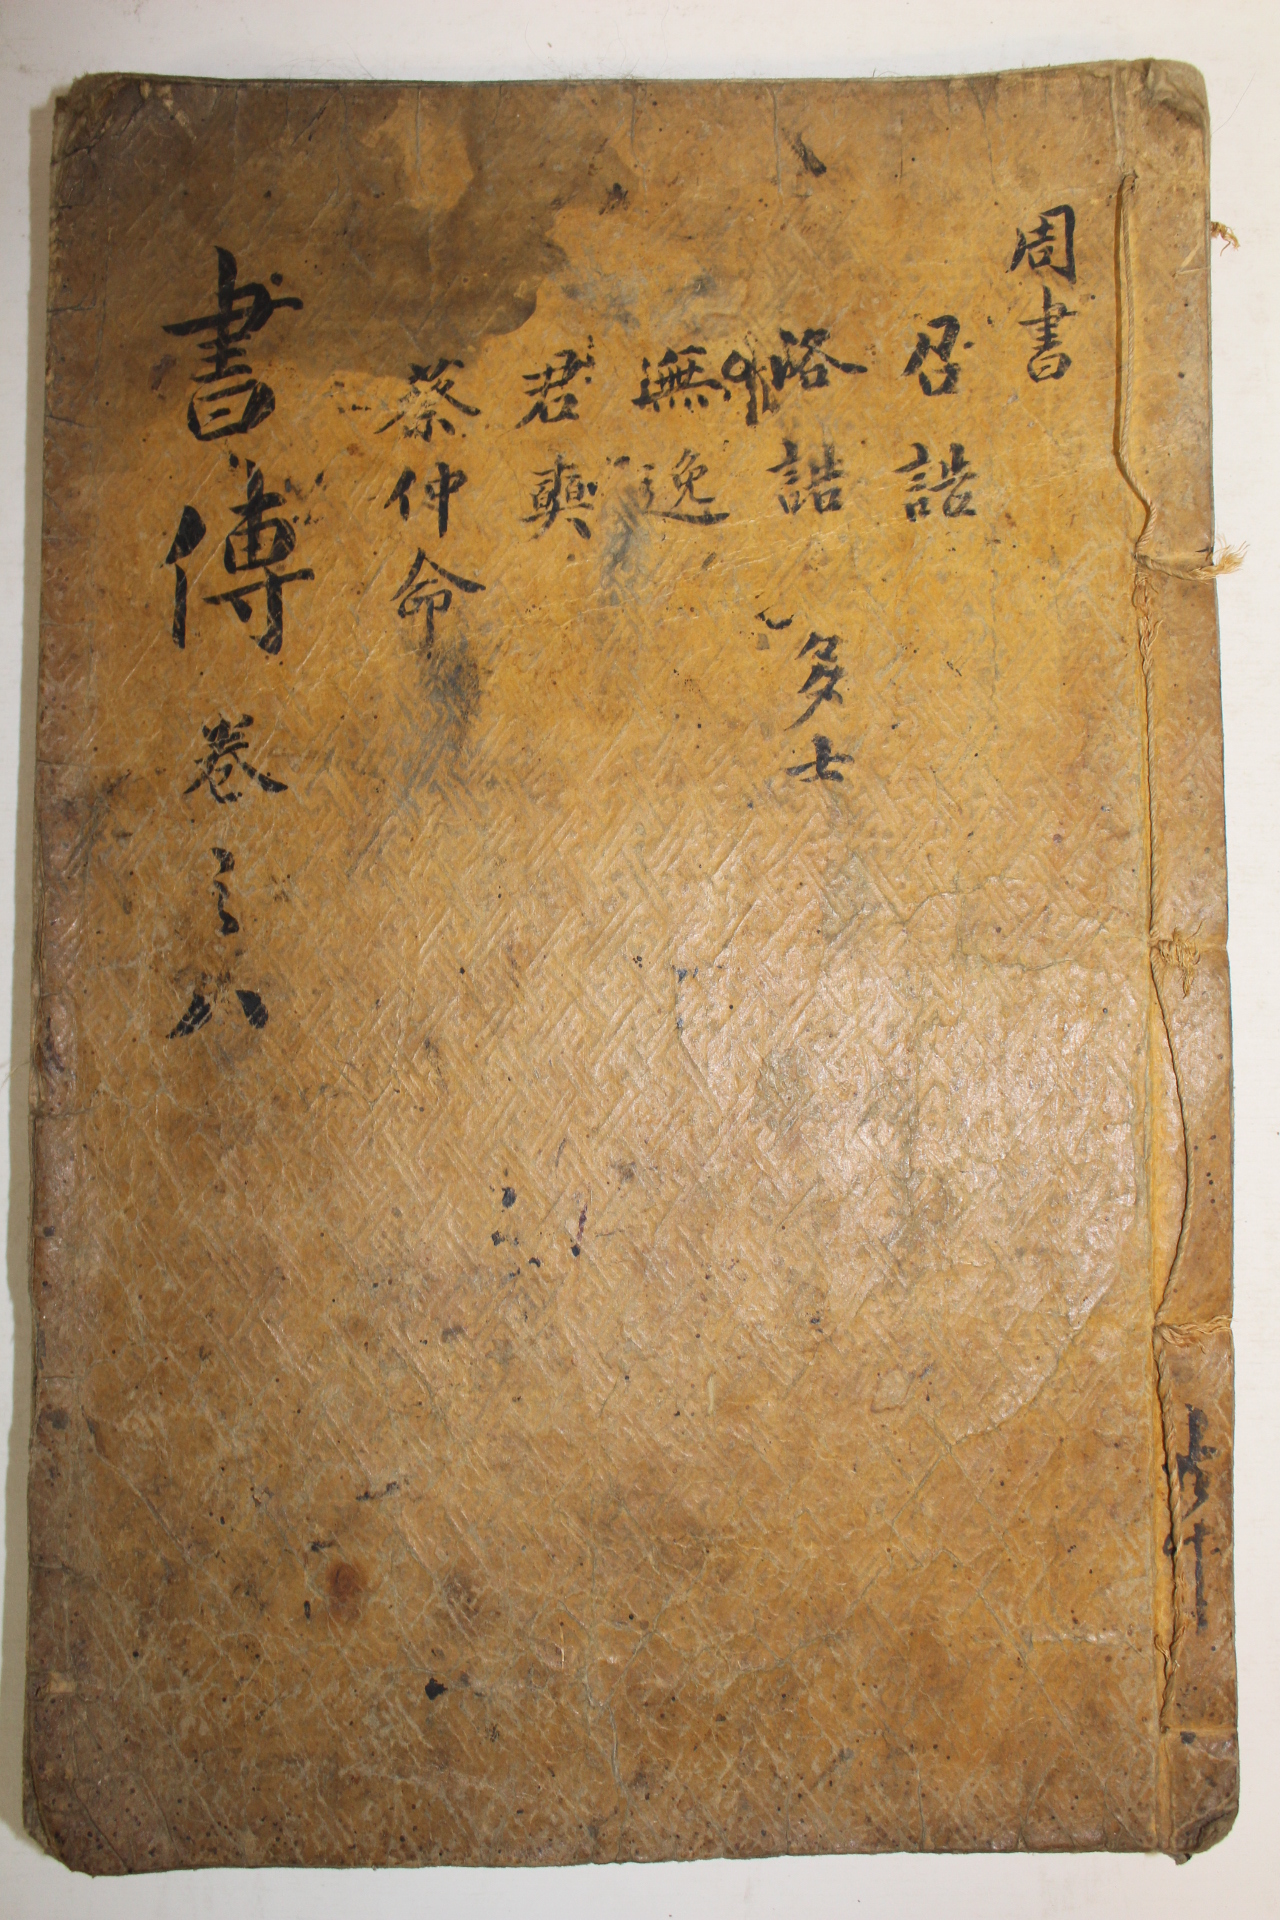 周書
召誥
洛誥
多士
無逸
君奭
蔡仲命
書傳 卷之八
共十